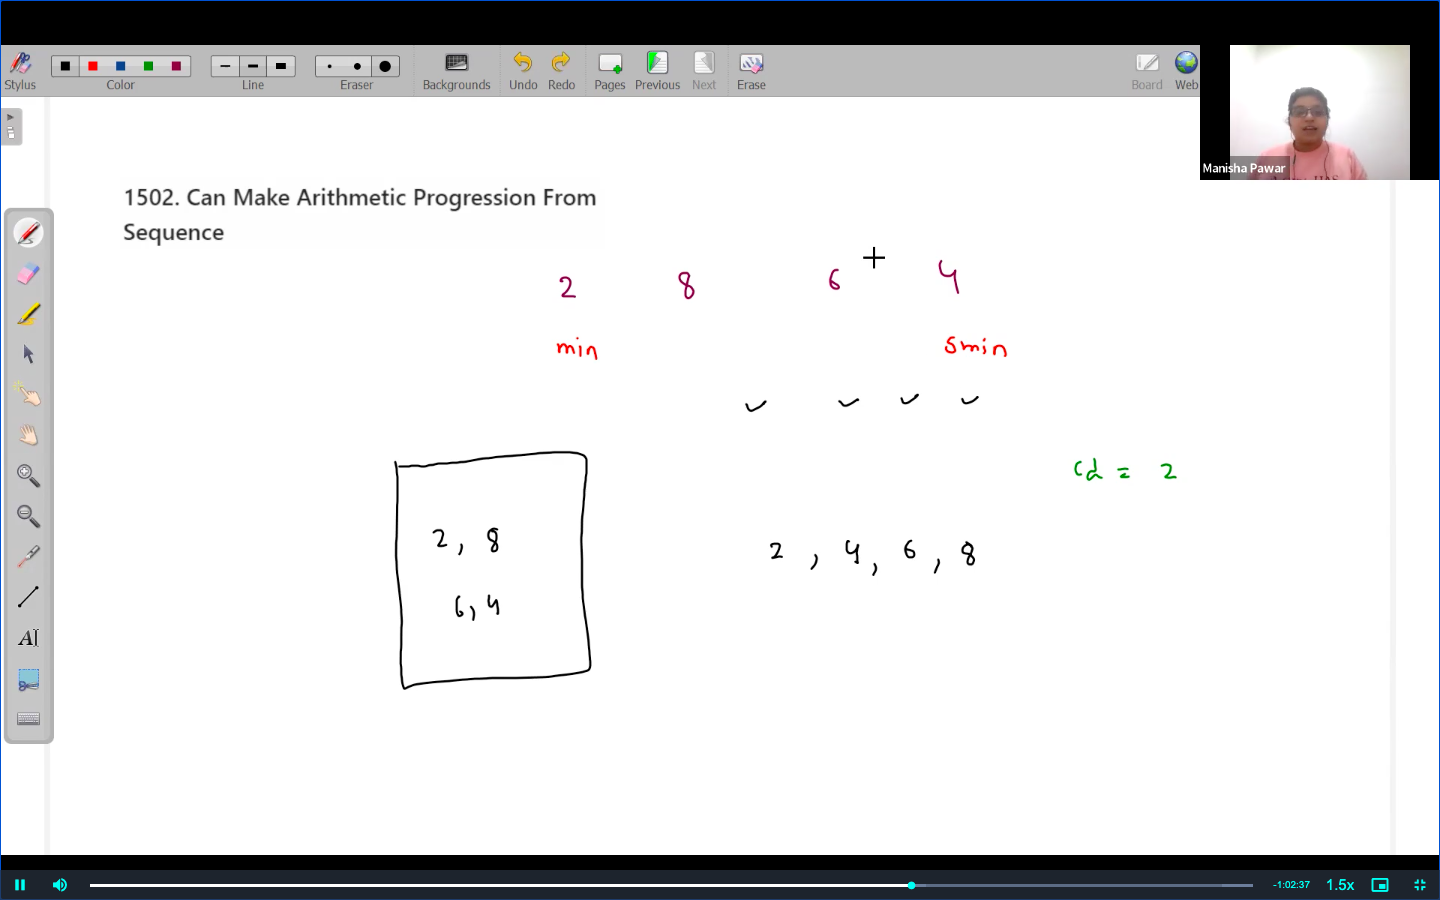 Stylus Color Line Eraser Backgrounds Undo Redo Pages Previous Next Erase Board Web
Manisha Pawar
1502. Can Make Arithmetic Progression From
Sequence
2 8 6 4
min smin
cd = 2
2, 8
2, 4, 6, 8
6, 4
AI
-1:02:37 1.5x